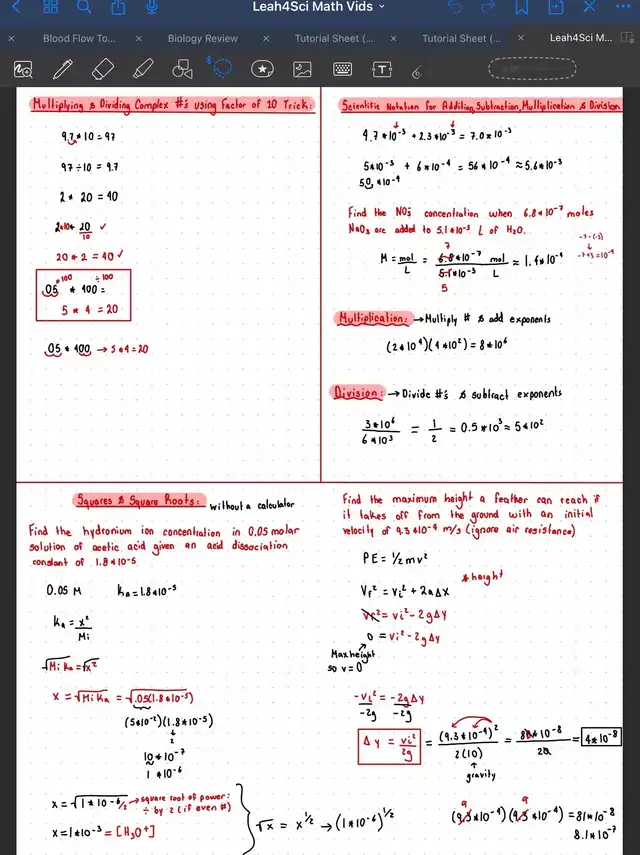 Leah4Sci Math Vids
Blood Flow To...
Biology Review
Tutorial Sheet (...
Tutorial Sheet (...
Leah4Sci M...
Multiplying & Dividing Complex #'s using Factor of 10 Trick:
9.7 * 10 = 97
97 ÷ 10 = 9.7
2 * 20 = 40
2*10 * 20/10 ✓
20 * 2 = 40 ✓
*100 ÷100
.05 * 400 =
5 * 4 = 20
.05 * 400 → 5 * 4 = 20
Scientific Notation for Addition, Subtraction, Multiplication & Division
4.7 * 10⁻³ + 2.3 * 10⁻³ = 7.0 * 10⁻³
5 * 10⁻³ + 6 * 10⁻⁴ = 56 * 10⁻⁴ ≈ 5.6 * 10⁻³
50 * 10⁻⁴
Find the NO₃⁻ concentration when 6.8 * 10⁻⁷ moles
NaO₃ are added to 5.1 * 10⁻³ L of H₂O.
-7 - (-3)
↓
-7 + 3 = 10⁻⁴
7
M = mol/L = 6.8 * 10⁻⁷ mol / 5.1 * 10⁻³ L ≈ 1.4 * 10⁻⁴
5
Multiplication: → Multiply # & add exponents
(2 * 10⁴)(4 * 10²) = 8 * 10⁶
Division: → Divide #'s & subtract exponents
3 * 10⁶ / 6 * 10³ = 1/2 = 0.5 * 10³ = 5 * 10²
Squares & Square Roots: without a calculator
Find the hydronium ion concentration in 0.05 molar
solution of acetic acid given an acid dissociation
constant of 1.8 * 10⁻⁵
0.05 M kₐ = 1.8 * 10⁻⁵
kₐ = x²/Mi
√Mi kₐ = √x²
x = √Mi kₐ = √.05(1.8 * 10⁻⁵)
(5 * 10⁻²)(1.8 * 10⁻⁵)
↓
2
10 * 10⁻⁷
1 * 10⁻⁶
x = √1 * 10⁻⁶/² → square root of power:
÷ by 2 (if even #)
x = 1 * 10⁻³ = [H₃O⁺]
√x = x^1/2 → (1 * 10⁻⁶)^1/2
Find the maximum height a feather can reach if
it takes off from the ground with an initial
velocity of 9.3 * 10⁻⁴ m/s (ignore air resistance)
PE = 1/2 mv²
* height
Vf² = Vi² + 2aΔx
Vf² = Vi² - 2gΔy
0 = Vi² - 2gΔy
Max height
so v = 0
-Vi²/-2g = -2gΔy/-2g
Δy = Vi²/2g = (9.3 * 10⁻⁴)²/2(10) = 80 * 10⁻⁸/20 = 4 * 10⁻⁸
↑
gravity
9 9
(9.3 * 10⁻⁴)(9.3 * 10⁻⁴) = 81 * 10⁻⁸
8.1 * 10⁻⁷